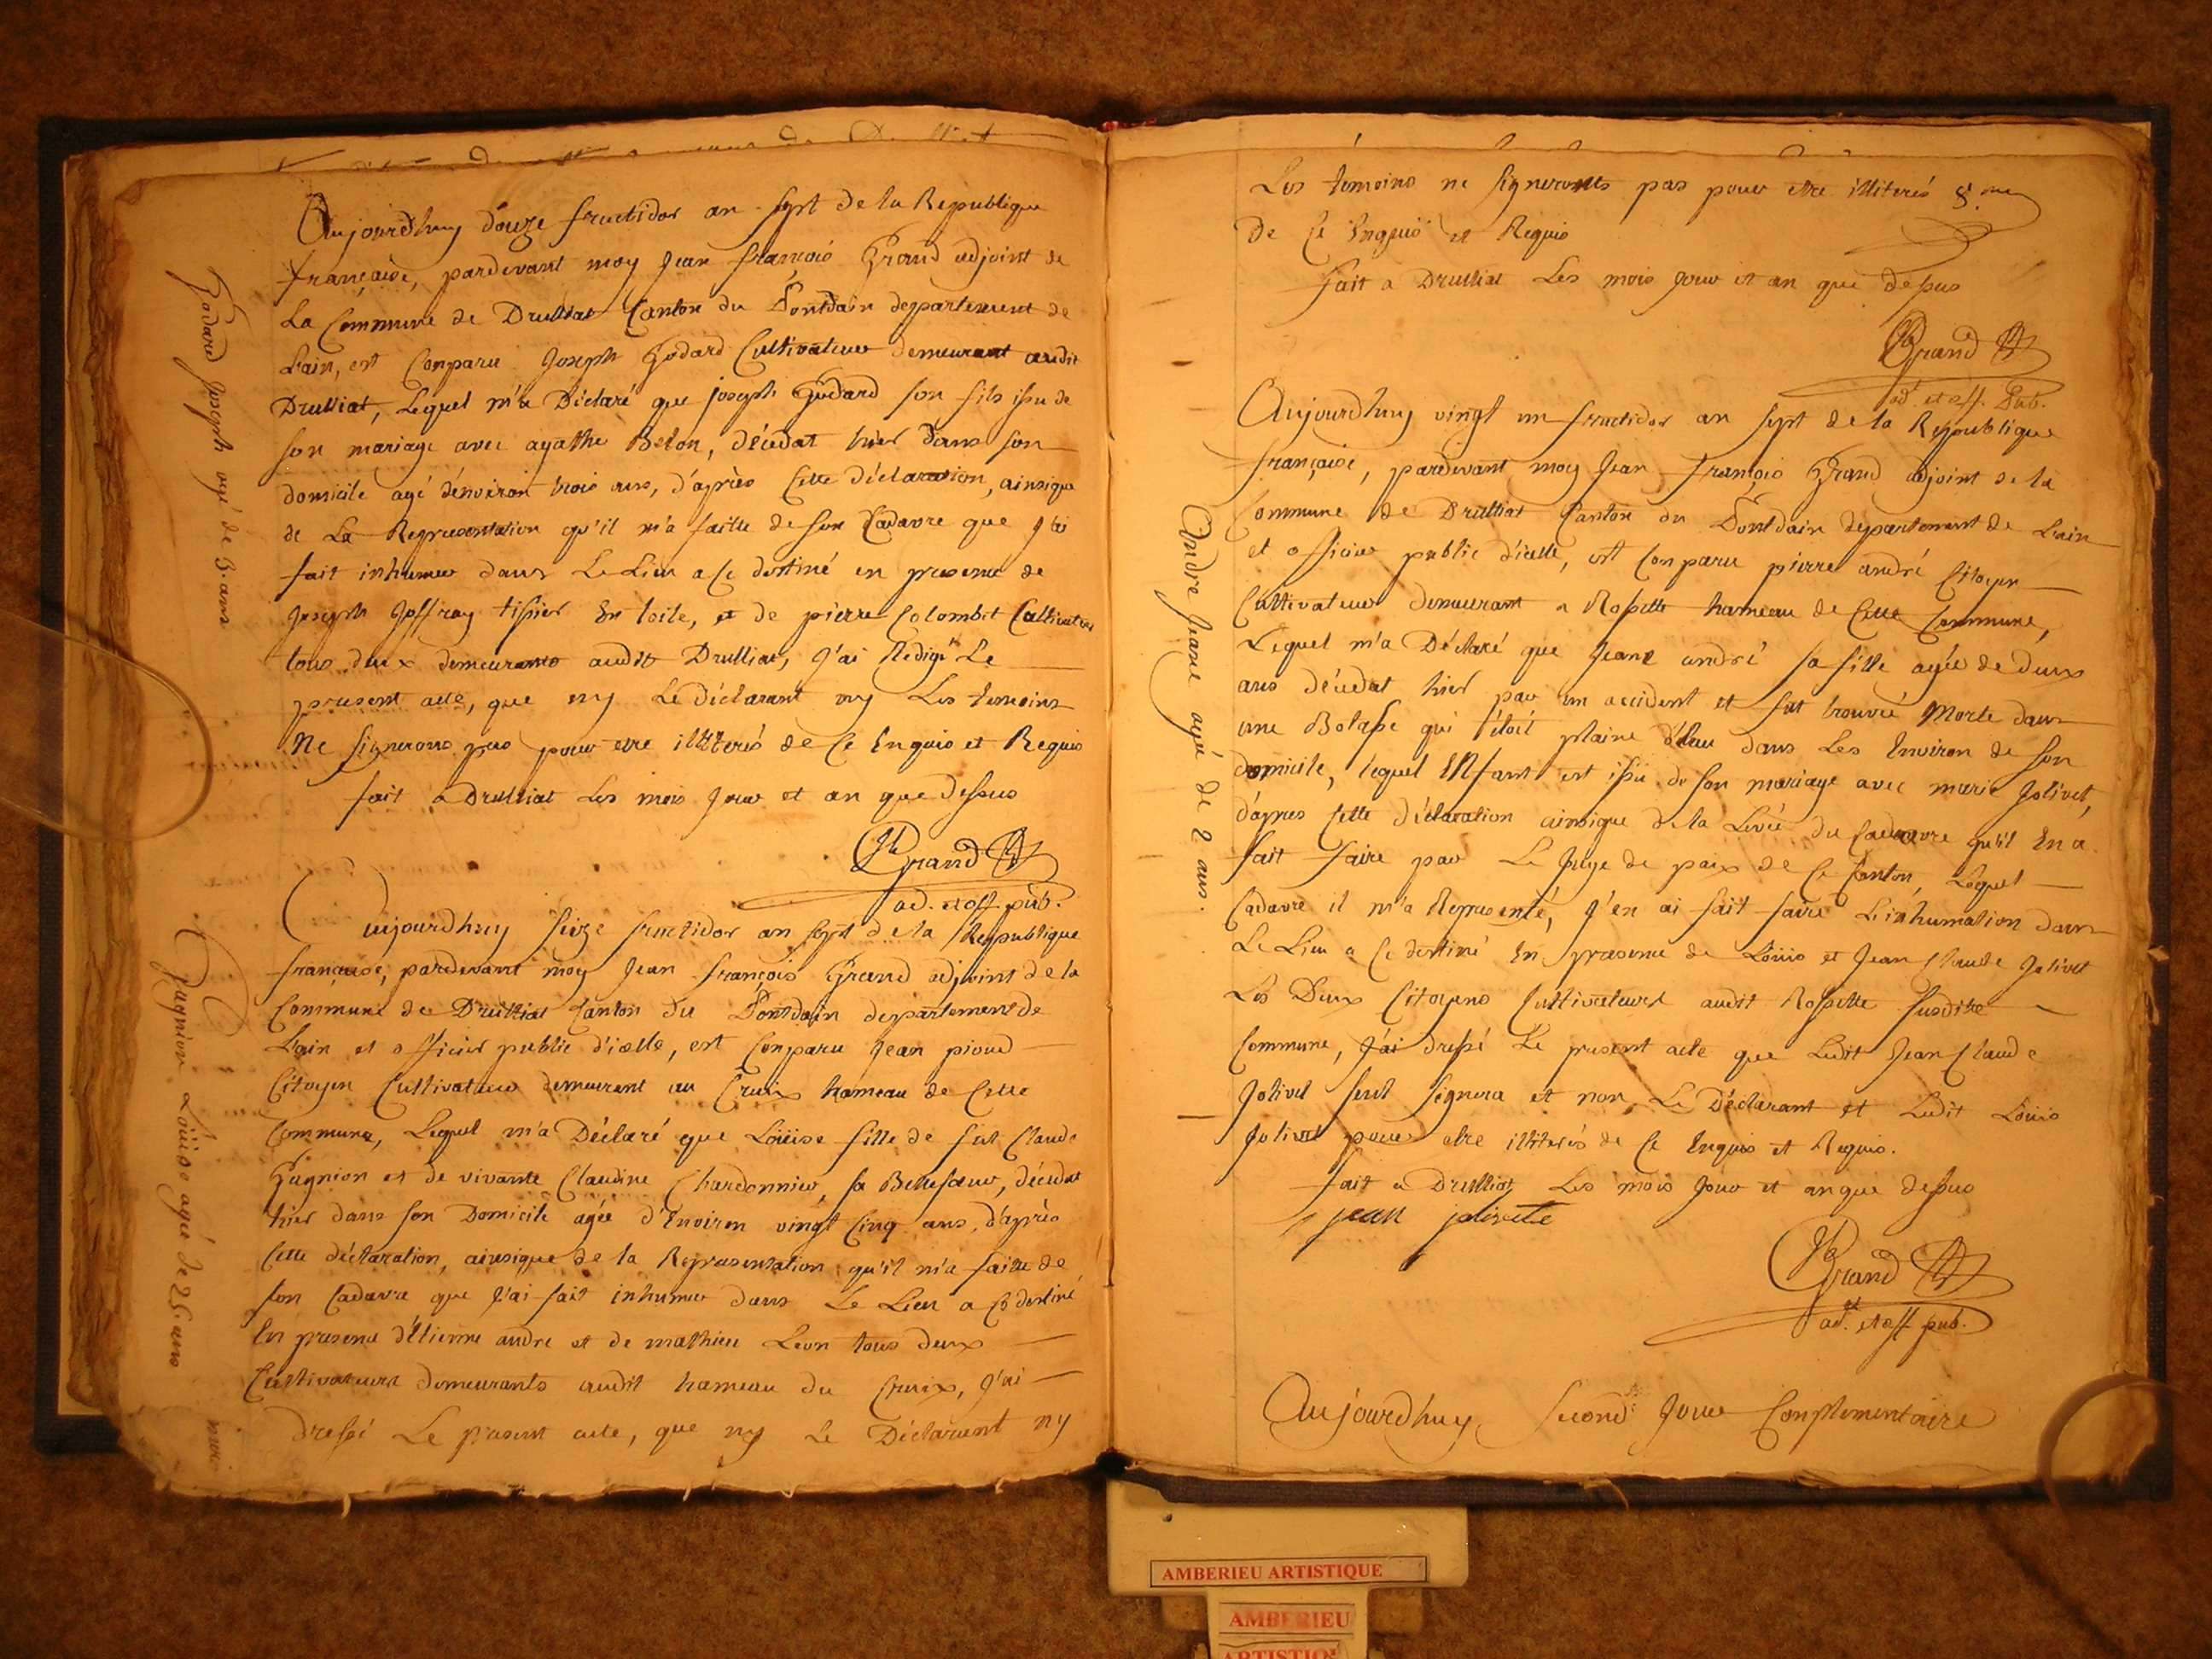 Aujourdhuy douze fructidor an sept de la Republique
française, pardevant moy Jean françois Grand adjoint de
La Commune de Druillat Canton du Pontdain departement de
Lain, est Comparu Joseph Godard Cultivateur demeurant audit
Druilliat, Lequel m'a Déclaré que joseph Godard son fils issu de
son mariage avec agathe Beton, décédat hier dans son
domicile agé d'environ trois ans, d'après Cette déclaration, ainsique
de La Representation qu'il m'a faitte de son Cadavre que J'ai
fait inhumer dans Le Lieu a Ce destiné en presence de
Joseph Joffray tissier En toile, et de pierre Colombet Cultivateur
tous deux demeurants audit Druilliat, J'ai Redigé Le
present acte, que ny Le déclarant ny Les temoins
Ne signerons pas pour etre illiterés de Ce Enquis et Requis
fait a Druilliat Les mois Jour et an que Dessus
Grand
ad. et off. pub.
Godard Joseph agé de 3. ans
Aujourdhuy seize fructidor an sept de la Republique
française, pardevant moy Jean françois Grand adjoint de la
Commune de Druilliat Canton du Pontdain departement de
Lain et officier public d'icelle, est Comparu Jean pioud
Citoyen Cultivateur demeurant au Cruix hameau de Cette
Commune, Lequel m'a Déclaré que Loüise fille de fut Claude
Gagnion et de vivante Claudine Chardonnier, sa Bellesœur, décédat
hier dans son Domicile agée d'Environ vingt Cinq ans, d'après
Cette déclaration, ainsique de la Representation qu'il m'a faitte de
son Cadavre que J'ai fait inhumer dans Le Lieu a Ce destiné
En presence d'Etienne andre et de mathieu Leon tous deux
Cultivateurs demeurants audit hameau du Cruix, J'ai
dressé Le present acte, que ny Le Déclarant ny
Gagnion Loüise agée de 25. ans
Les temoins ne signerontes pas pour etre illiterés
de Ce Enquis et Requis
fait a Druilliat Les mois Jour et an que dessus
Grand
ad. et off. Pub.
Aujourdhuy vingt un fructidor an sept de la Republique
française, pardevant moy Jean françois Grand adjoint de la
Commune de Druilliat Canton du Pontdain departement de Lain
et officier public d'icelle, est Comparu pierre andré Citoyen
Cultivateur demeurant a Rossette hameau de Cette Commune,
Lequel m'a Déclaré que Jeane andré sa fille agée de deux
ans décédat hier par un accident et fut trouvée Morte dans
une Bolasse qui étoit plaine d'Eau dans Les Environ de son
domicile, lequel ENfant est issü de son mariage avec marie Jolivet,
d'apres Cette déclaration ainsique de la Levée du Cadavre qu'il En a
fait faire par Le Juge de paix de Ce Canton, Lequel
Cadavre il m'a Representé, J'en ai fait faire L'inhumation dans
Le Lieu a Ce destiné En presence de Loüis et Jean Claude Jolivet
Les Deux Citoyens Cultivateurs audit Rossette susditte
Commune, J'ai dressé Le present acte que Ledit Jean Claude
Jolivet seul signera et non Le Déclarant et Ledit Loüis
Jolivet pour etre illiterés de Ce Enquis et Requis.
fait a Druilliat Les mois Jour et an que dessus
jean
Grand
ad. et off. pub.
Andre Jeane agée de 2 ans.
Aujourdhuy second Jour Complementaire
AMBERIEU ARTISTIQUE
AMBERIEU
ARTISTIQ